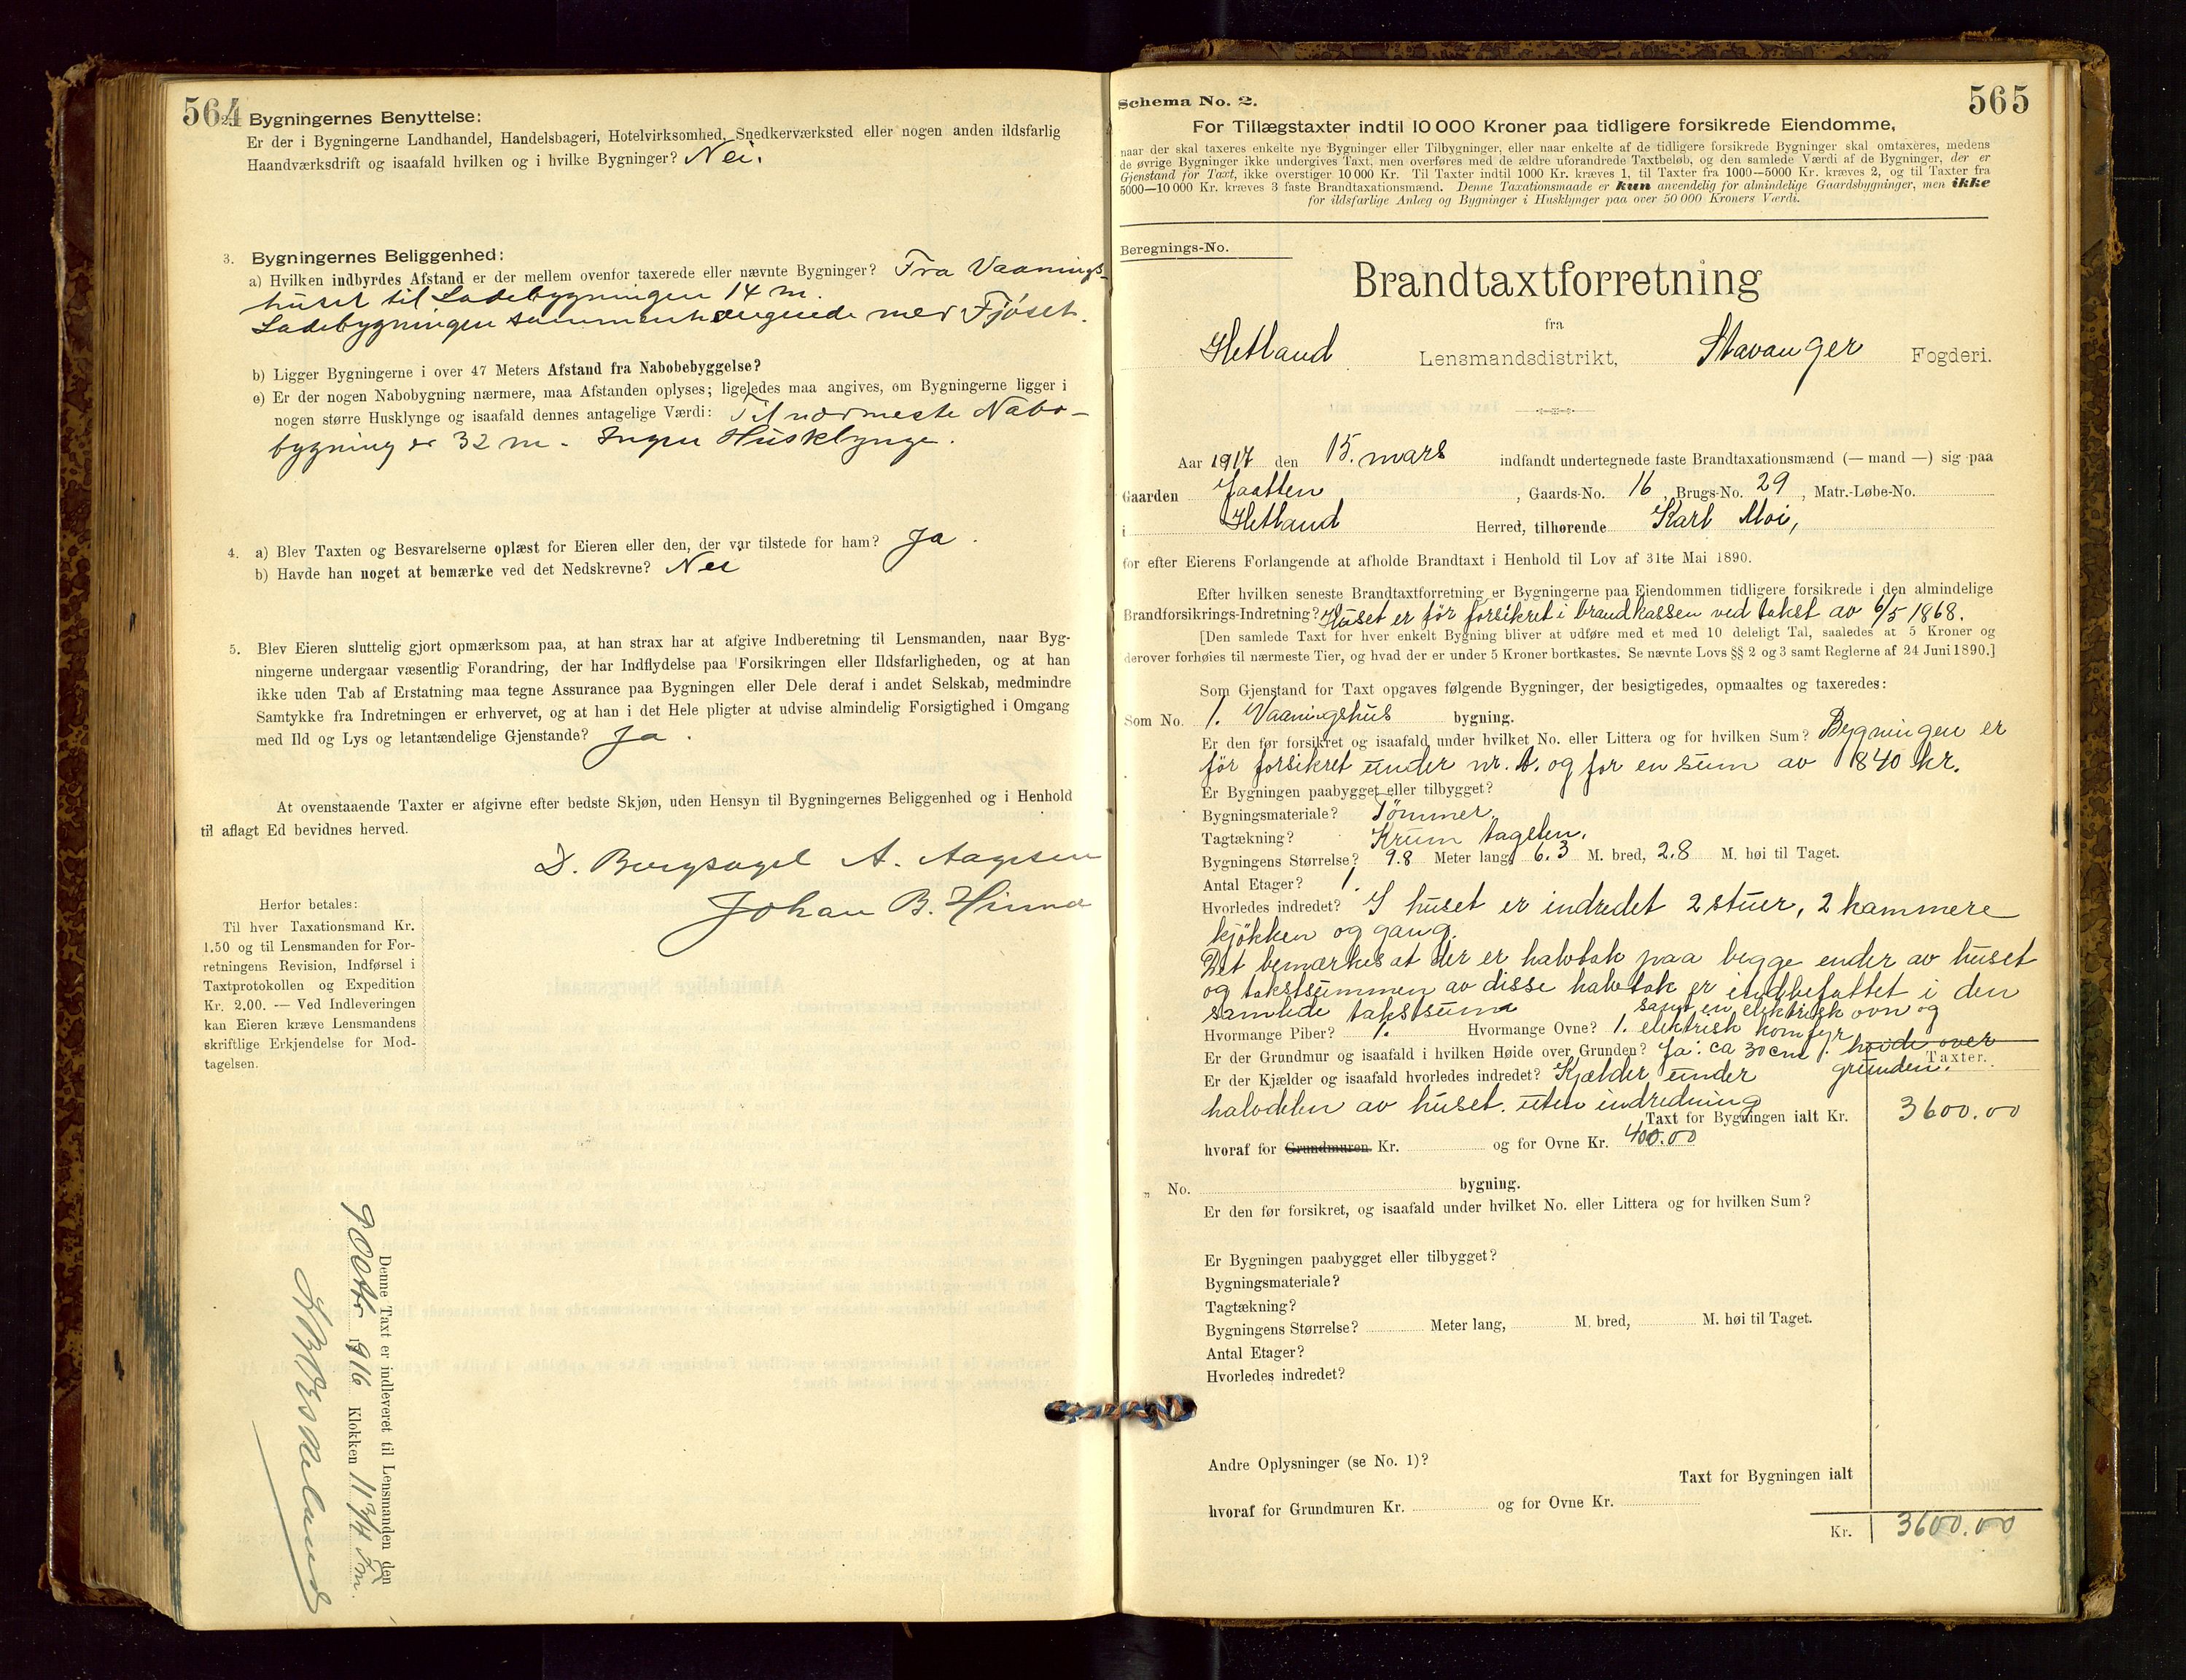 564
Bygningernes Benyttelse:
Er der i Bygningerne Landhandel, Handelsbageri, Hotelvirksomhed, Snedkerværksted eller nogen anden ildsfarlig
Haandværksdrift og isaafald hvilken og i hvilke Bygninger? Nei.
3. Bygningernes Beliggenhed:
a) Hvilken indbyrdes Afstand er der mellem ovenfor taxerede eller nævnte Bygninger? Fra Vaanings-
huset til Ladebygningen 14 m.
Ladebygningen sammenhængende med Fjøset.
b) Ligger Bygningerne i over 47 Meters Afstand fra Nabobebyggelse?
c) Er der nogen Nabobygning nærmere, maa Afstanden oplyses; ligeledes maa angives, om Bygningerne ligger i
nogen større Husklynge og isaafald dennes antagelige Værdi: Til nærmeste Nabo-
bygning er 32 m. Ingen Husklynge.
4. a) Blev Taxten og Besvarelserne oplæst for Eieren eller den, der var tilstede for ham? Ja.
b) Havde han noget at bemærke ved det Nedskrevne? Nei
5. Blev Eieren sluttelig gjort opmærksom paa, at han strax har at afgive Indberetning til Lensmanden, naar Byg-
ningerne undergaar væsentlig Forandring, der har Indflydelse paa Forsikringen eller Ildsfarligheden, og at han
ikke uden Tab af Erstatning maa tegne Assurance paa Bygningen eller Dele deraf i andet Selskab, medmindre
Samtykke fra Indretningen er erhvervet, og at han i det Hele pligter at udvise almindelig Forsigtighed i Omgang
med Ild og Lys og letantændelige Gjenstande? Ja.
At ovenstaaende Taxter er afgivne efter bedste Skjøn, uden Hensyn til Bygningernes Beliggenhed og i Henhold
til aflagt Ed bevidnes herved.
D. Bergsagel A. Aagesen
Johan B. Hinna
Herfor betales:
Til hver Taxationsmand Kr.
1.50 og til Lensmanden for For-
retningens Revision, Indførsel i
Taxtprotokollen og Expedition
Kr. 2.00. — Ved Indleveringen
kan Eieren kræve Lensmandens
skriftlige Erkjendelse for Mod-
tagelsen.
Denne Taxt er indleveret til Lensmanden den
9 Octbr 1916 Klokken 11 3/4 Fm.
Schema No. 2.
565
For Tillægstaxter indtil 10 000 Kroner paa tidligere forsikrede Eiendomme,
naar der skal taxeres enkelte nye Bygninger eller Tilbygninger, eller naar enkelte af de tidligere forsikrede Bygninger skal omtaxeres, medens
de øvrige Bygninger ikke undergives Taxt, men overføres med de ældre uforandrede Taxtbeløb, og den samlede Værdi af de Bygninger, der er
Gjenstand for Taxt, ikke overstiger 10 000 Kr. Til Taxter indtil 1000 Kr. kræves 1, til Taxter fra 1000—5000 Kr. kræves 2, og til Taxter fra
5000—10 000 Kr. kræves 3 faste Brandtaxationsmænd. Denne Taxationsmaade er kun anvendelig for almindelige Gaardsbygninger, men ikke
for ildsfarlige Anlæg og Bygninger i Husklynger paa over 50 000 Kroners Værdi.
Beregnings-No.
Brandtaxtforretning
fra
Hetland Lensmandsdistrikt, Stavanger Fogderi.
Aar 1917 den 15. mars indfandt undertegnede faste Brandtaxationsmænd (— mand —) sig paa
Gaarden Jaatten, Gaards-No. 16, Brugs-No. 29, Matr.-Løbe-No.
i Hetland Herred, tilhørende Karl Moi,
for efter Eierens Forlangende at afholde Brandtaxt i Henhold til Lov af 31te Mai 1890.
Efter hvilken seneste Brandtaxtforretning er Bygningerne paa Eiendommen tidligere forsikrede i den almindelige
Brandforsikrings-Indretning? Huset er før forsikret i brandkassen ved takst av 6/5 1868.
[Den samlede Taxt for hver enkelt Bygning bliver at udføre med et med 10 deleligt Tal, saaledes at 5 Kroner og
derover forhøies til nærmeste Tier, og hvad der er under 5 Kroner bortkastes. Se nævnte Lovs §§ 2 og 3 samt Reglerne af 24 Juni 1890.]
Som Gjenstand for Taxt opgaves følgende Bygninger, der besigtigedes, opmaaltes og taxeredes:
Som No. 1. Vaaningshus bygning.
Er den før forsikret og isaafald under hvilket No. eller Littera og for hvilken Sum? Bygningen er
før forsikret under nr. og for en sum av 840 kr.
Er Bygningen paabygget eller tilbygget?
Bygningsmateriale? Tømmer.
Tagtækning? Krum tagsten.
Bygningens Størrelse? 9.8 Meter lang, 6.3 M. bred, 2.8 M. høi til Taget.
Antal Etager? 1.
Hvorledes indredet? I huset er indredet 2 stuer, 2 kammere
kjøkken og gang.
Det bemærkes at der er halvtak paa begge ender av huset
og takstsummen av disse halvtak er indbefattet i den
samlede takstsum samt en elektrisk ovn og
Hvormange Piber? 1. Hvormange Ovne? 1. elektrisk komfyr
Er der Grundmur og isaafald i hvilken Høide over Grunden? Ja: ca 30 cm. høide over
Taxter.
Er der Kjælder og isaafald hvorledes indredet? Kjælder under grunden.
halvdelen av huset. uten indredning
Taxt for Bygningen ialt Kr. 3600.00
hvoraf for Grundmuren Kr. og for Ovne Kr. 400.00
„ No. bygning.
Er den før forsikret, og isaafald under hvilket No. eller Littera og for hvilken Sum?
Er Bygningen paabygget eller tilbygget?
Bygningsmateriale?
Tagtækning?
Bygningens Størrelse? Meter lang, M. bred, M. høi til Taget.
Antal Etager?
Hvorledes indredet?
Andre Oplysninger (se No. 1)?
Taxt for Bygningen ialt
hvoraf for Grundmuren Kr. og for Ovne Kr.
Kr. 3600.00